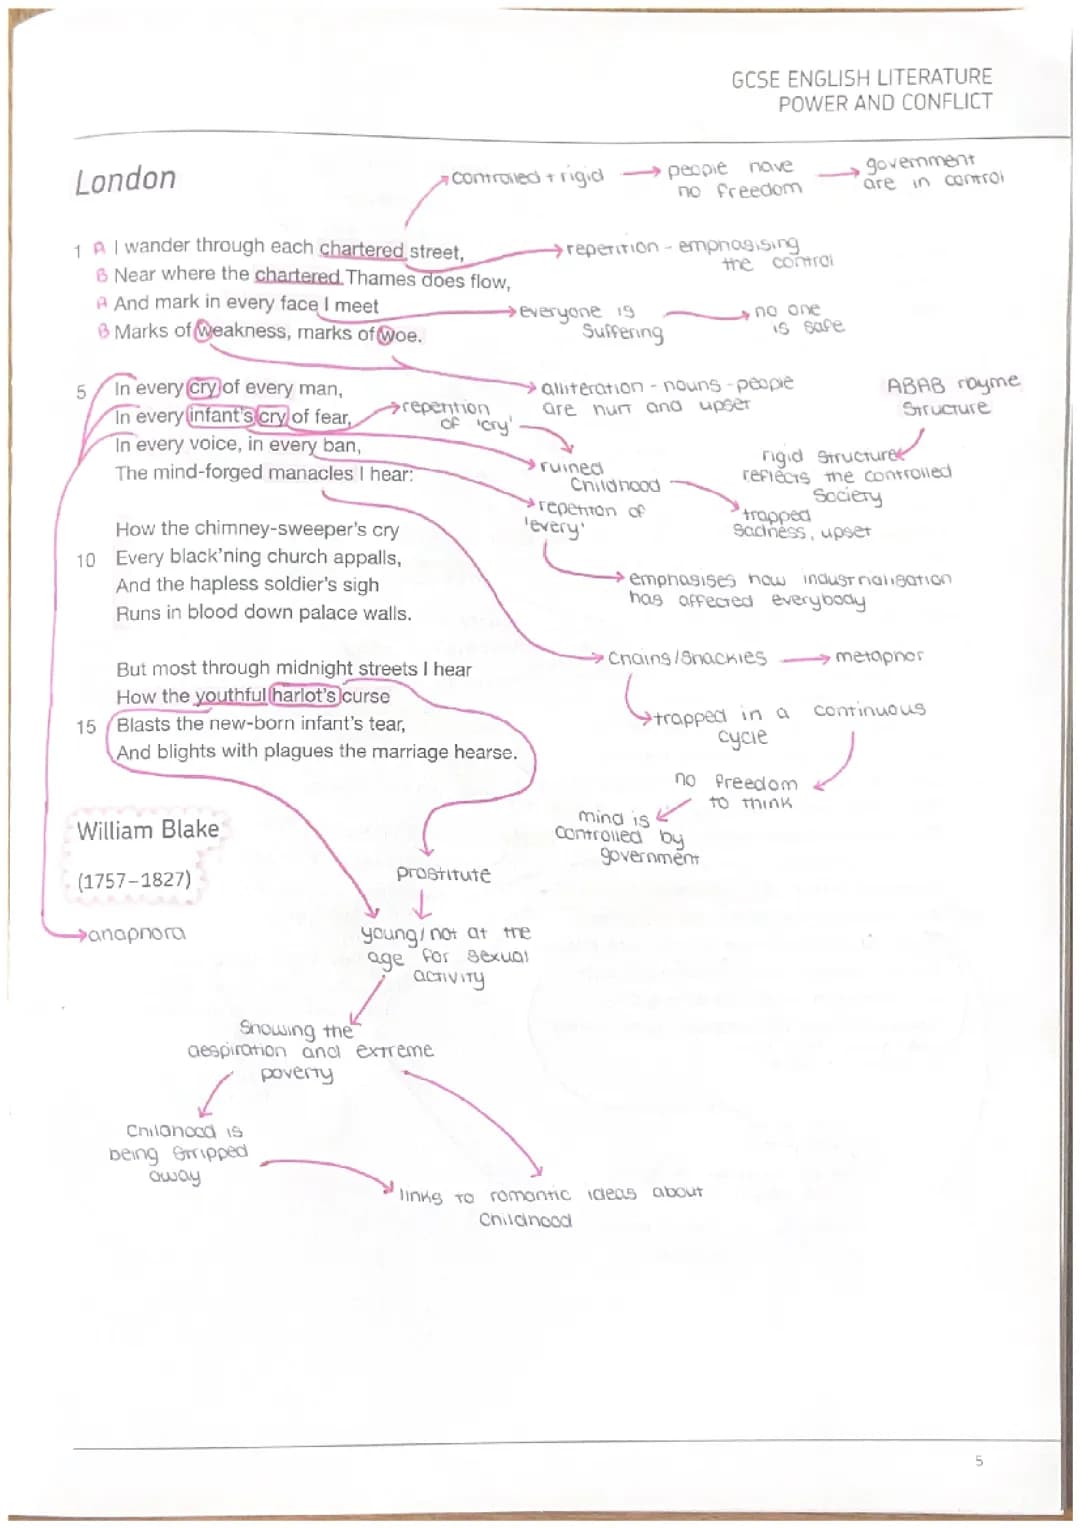 GCSE ENGLISH LITERATURE
POWER AND CONFLICT
London
controlled + rigid
people have
no freedom
government
are in control
1 A I wander through each chartered street,
repetition - emphasising
the control
B Near where the chartered Thames does flow,
A And mark in every face I meet
everyone is
suffering
no one
is safe
B Marks of weakness, marks of woe.
5 In every cry of every man,
alliteration - nouns - people
are hurt and upset
ABAB rhyme
structure
In every infant's cry of fear,
repetition
of 'cry'
In every voice, in every ban,
ruined
childhood
trapped
sadness, upset
rigid structure
reflects the controlled
society
The mind-forged manacles I hear:
repetition of
'every'
emphasises how industrialisation
has affected everybody
How the chimney-sweeper's cry
10 Every black'ning church appalls,
And the hapless soldier's sigh
Runs in blood down palace walls.
chains/shackles
metaphor
trapped in a continuous
cycle
no freedom
to think
mind is
controlled by
government
But most through midnight streets I hear
How the youthful harlot's curse
15 Blasts the new-born infant's tear,
And blights with plagues the marriage hearse.
William Blake
(1757–1827)
anaphora
prostitute
young/not at the
age for sexual
activity
showing the
despiration and extreme
poverty
childhood is
being stripped
away
links to romantic ideas about
childhood
5